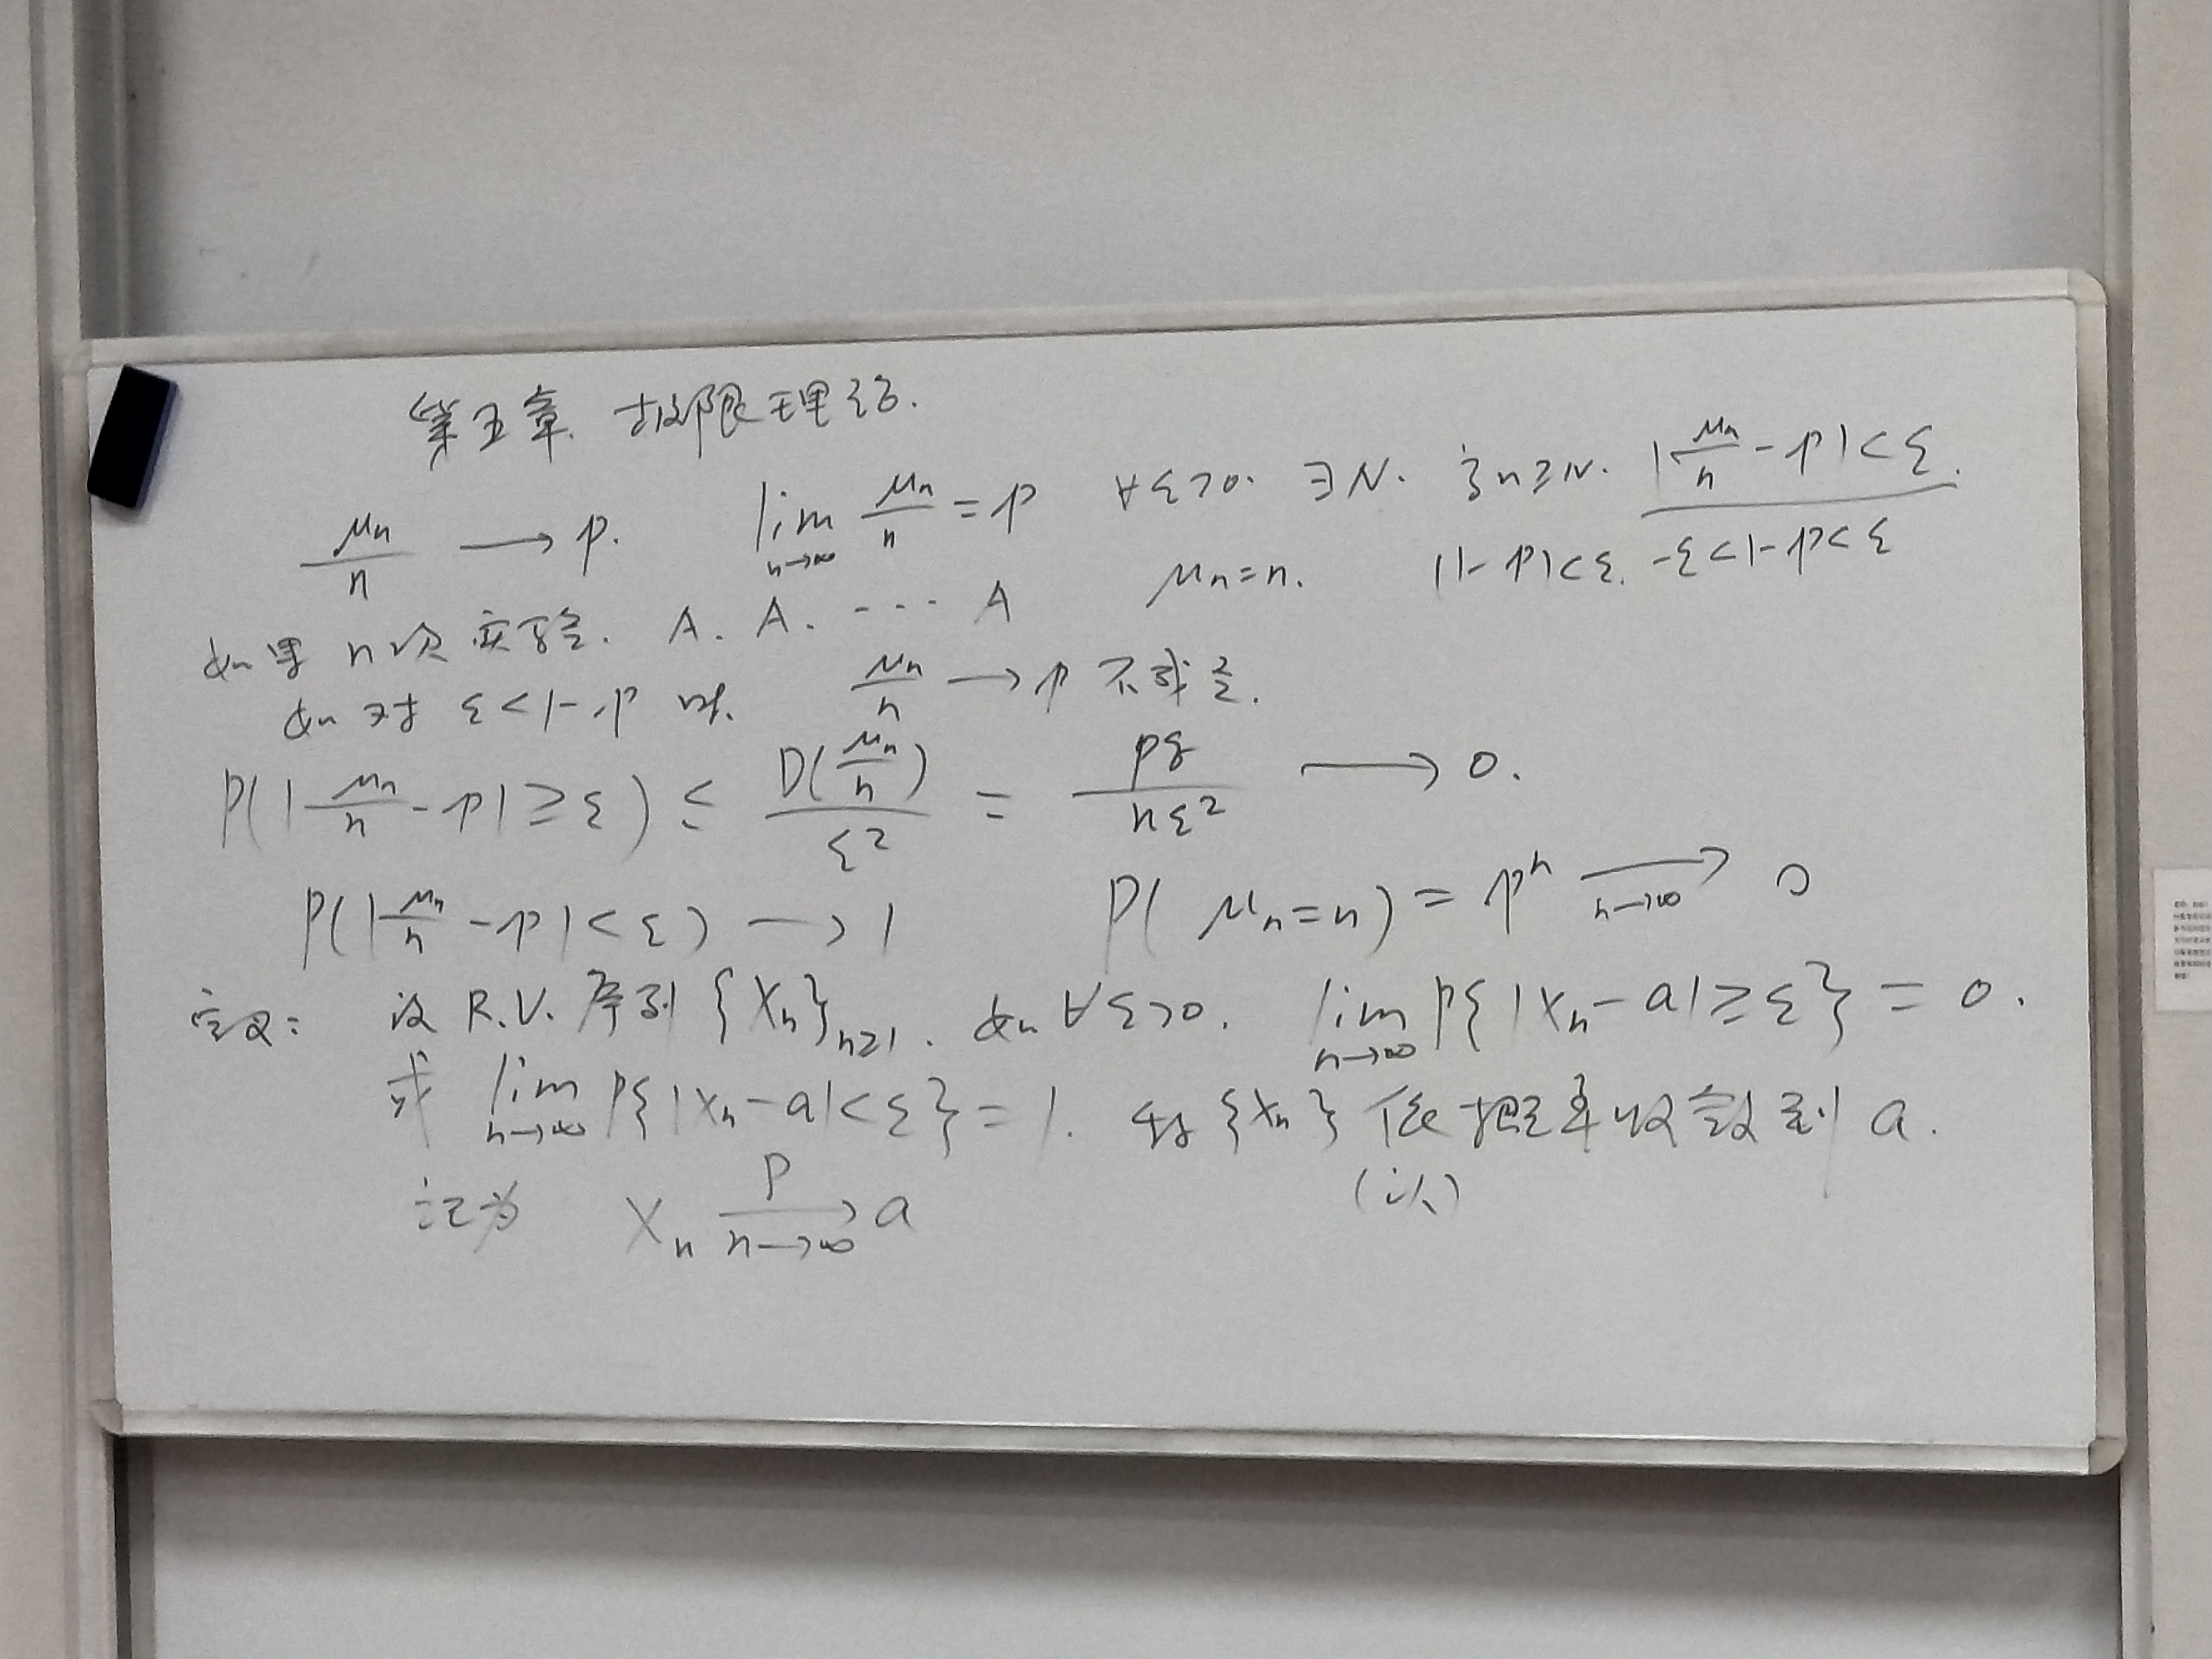 第五章 极限理论.
μn/n → p. lim n→∞ μn/n = p ∀ε>0. ∃N. 当n≥N. |μn/n - p|<ε.
如果 n次实验. A. A. ··· A μn=n. |1-p|<ε. -ε<1-p<ε
如对 ε<1-p 时. μn/n → p 不成立.
P(|μn/n - p|≥ε) ≤ D(μn/n)/ε² = pq/nε² → 0.
P(|μn/n - p|<ε) → 1 P(μn=n) = pⁿ →(n→∞) 0
定义: 设 R.V. 序列 {Xn}n≥1. 如 ∀ε>0. lim n→∞ P{|Xn-a|≥ε} = 0.
或 lim n→∞ P{|Xn-a|<ε} = 1. 称 {Xn} 依概率收敛到 a.
(以)
记为 Xn →(P, n→∞) a